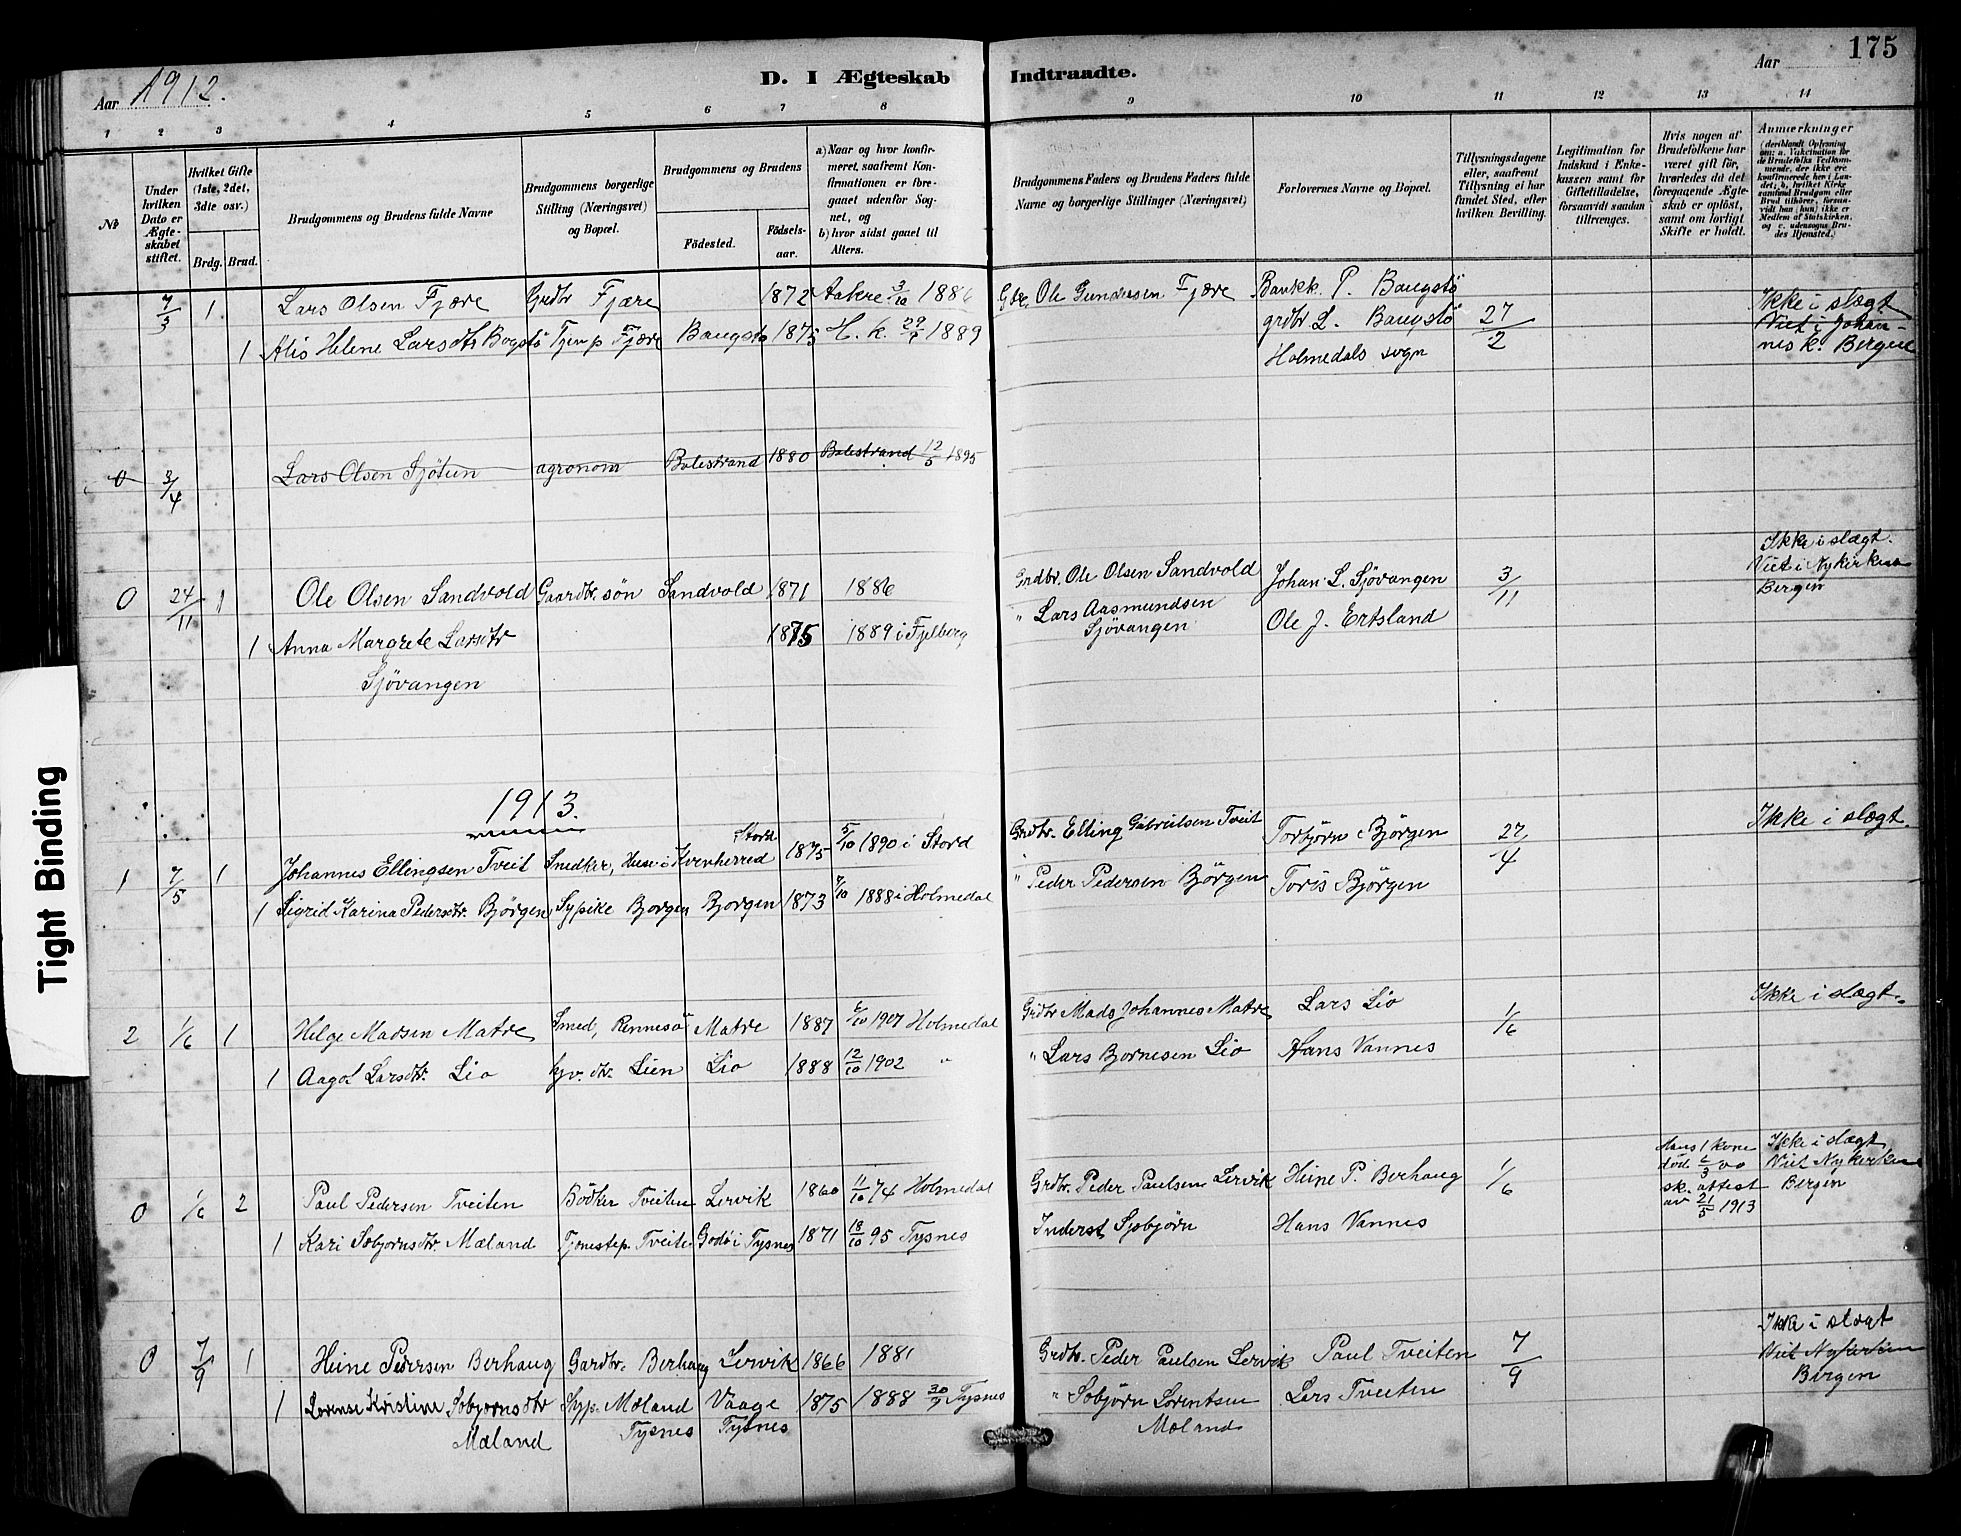 175
Aar 1912.
D. I Ægteskab Indtraadte.
Aar
1 2 3 4 5 6 7 8 9 10 11 12 13 14
No
Under hvilken Dato er Ægteskabet stiftet.
Hvilket Gifte (1ste, 2det, 3die osv.)
Brdg. Brud.
Brudgommens og Brudens fulde Navne
Brudgommens borgerlige Stilling (Næringsvei) og Bopæl.
Brudgommens og Brudens
Fødested.
Fødselsaar.
a) Naar og hvor konfirmeret, saafremt Konfirmationen er foregaaet udenfor Sognet, og
b) hvor sidst gaaet til Alters.
Brudgommens Faders og Brudens Faders fulde Navne og borgerlige Stillinger (Næringsvei)
Forlovernes Navne og Bopæl.
Tillysningsdagene eller, saafremt Tillysning ei har fundet Sted, efter hvilken Bevilling.
Legitimation for Indskud i Enkekassen samt for Giftetilladelse, forsaavidt saadan tiltrænges.
Hvis nogen af Brudefolkene har været gift før, hvorledes da det foregaaende Ægteskab er opløst, samt om lovligt Skifte er holdt.
Anmærkninger
(deriblandt Oplysning om: a. Vakcination for de Brudefolks Vedkommende, der ikke ere konfirmerede her i Landet; b. hvilket Kirkesamfund Brudgom eller Brud tilhører, forsaavidt han (hun) ikke er Medlem af Statskirken, og c. udensogns Brudes Hjemsted.)
7/3 1. Lars Olsen Fjære Grdbr Fjære 1872 Aakre 3/10 1886 Gbr. Ole Gundersen Fjære Bankk. P. Baugstö Ikke i slægt
1 Alis Helene Larsdtr Bogstö Tjen p Fjære Baugstö 1875 H. k. 29/9 1889 grdbr L. Baugstö 27/2 Viet i Johan-
Holmedals sogn nes k. Bergen
0 3/4 Lars Olsen Sjötun agronom Balestrand 1880 Balestrand 12/5 1895
Ikke i slægt.
0 24/11 1 Ole Olsen Sandvold Gaardbr. søn Sandvold 1871 1886 Grdbr. Ole Olsen Sandvold Johan L. Sjövangen 3/11 Viet i Nykirken
Bergen
1 Anna Margrete Larsdtr 1875 1889 i Fjelberg " Lars Aasmundsen Ole J. Ertsland
Sjövangen Sjövangen
1913.
Stord
1 7/5 1 Johannes Ellingsen Tveit Snedker, Huse i Kvinherred 1875 5/10 1890 i Stord Grdbr. Elling Gabrielsen Tveit Torbjörn Björgen 27/4 Ikke i slægt.
1 Sigrid Karina Pedersdtr. Björgen Sypike Bjorgen Bjorgen 1873 7/10 1888 i Holmedal " Peder Pedersen Björgen Toris Björgen
2 1/6 1 Helge Madsen Matre Smed, Rennesö Matre 1887 6/10 1907 Holmedal Grdbr Mads Johannes Matre Lars Lio 1/6 Ikke i slægt.
1 Aagot Larsdtr. Lio hjv. dtr. Lien Lio 1888 12/10 1902 " " Lars Bjornesen Lio Hans Vannes
Hans 1 kone Ikke i slægt
död 2/3 00 Viet Nykirken
0 1/6 2 Paul Pedersen Tveiten Bödker Tveiten Lervik 1860 11/10 74 Holmedal Grdbr. Peder Paulsen Lervik Heine P. Berhaug 1/6 sk. attest Bergen
av 21/5 1913
1 Kari Sobjornsdtr. Mæland Tjenestep. Tveite Godö i Tysnes 1871 18/10 95 Tysnes Inderst Sjobjörn Hans Vannes
Ikke i slægt
0 7/9 1 Heine Pedersen Berhaug Gardbr. Berhaug Lervik 1866 1881 Grdbr. Peder Paulsen Lervik Paul Tveiten 7/9 Viet Nykirken
Bergen
1 Lorense Kristine Sobjornsdtr Syp. Mæland Vaage 1875 1888 30/9 Tysnes " Sobjörn Lorentsen Lars Tveiten
Mæland Tysnes Tysnes Mæland
Tight Binding